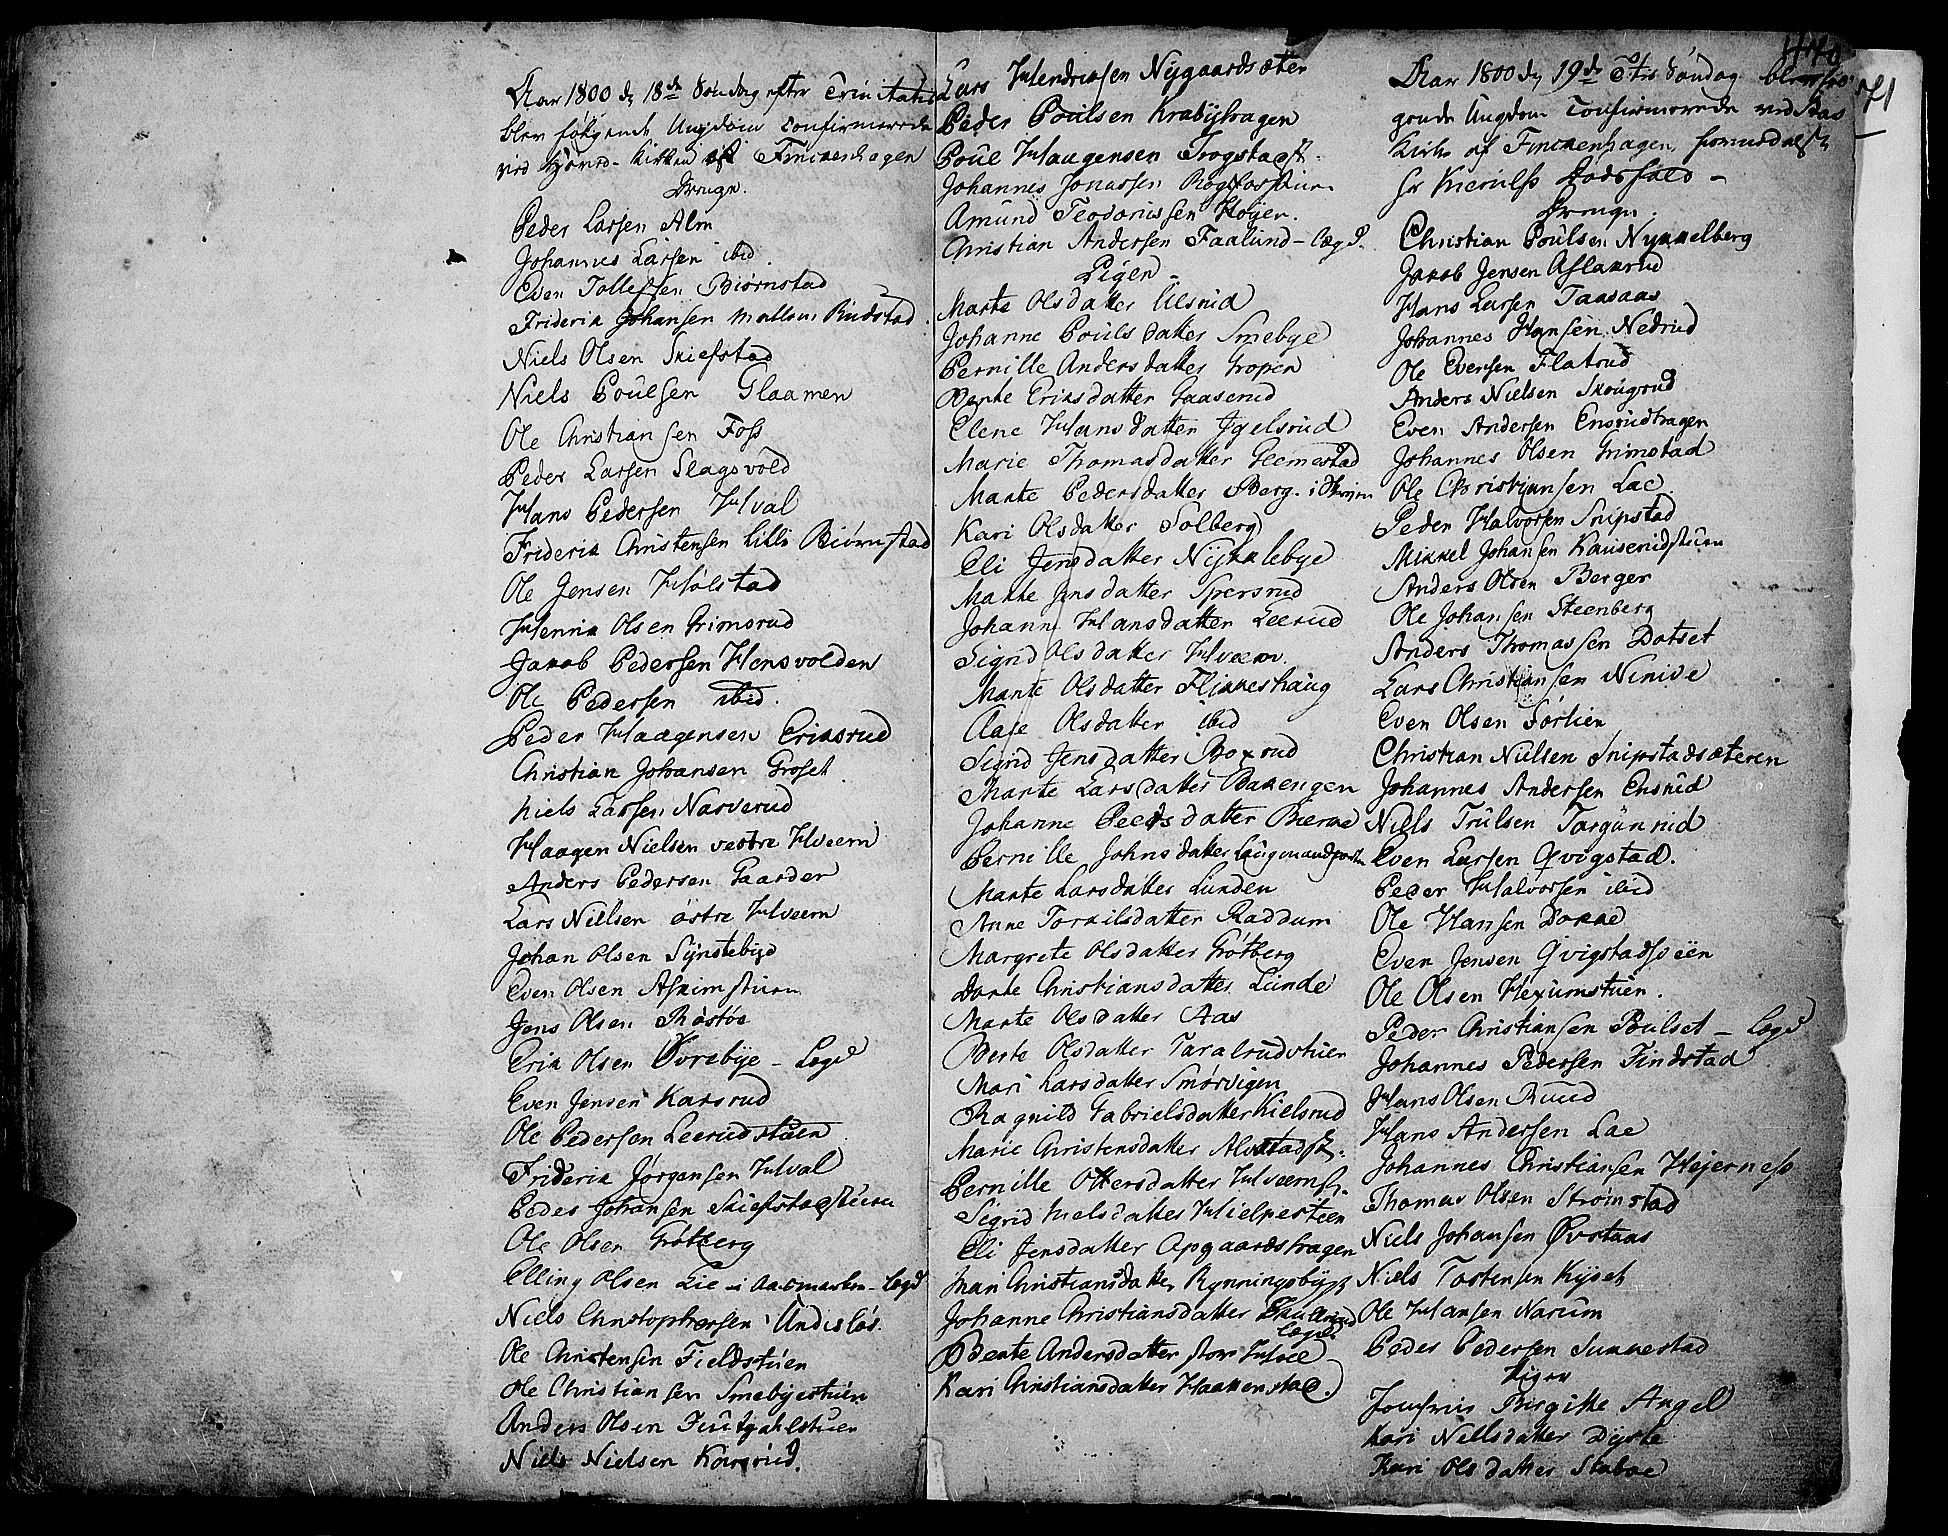 Aar 1800 d 18de Søndag efter Trinitatis
blev følgende Ungdom Confirmerede
ved Kirken af Finckenhagen
Drenge.
Peder Larsen Alm
Johannes Larsen ibid.
Even Tollefsen Biørnstad
Friderik Johansen mellom Rudstad
Niels Olsen Skiefstad
Niels Poulsen Glaamen
Ole Christiansen Foss
Peder Larsen Slagsvold
Hans Pedersen Hval
Friderik Christensen Lille Biørnstad
Ole Jensen Holstad
Henrik Olsen Grimsrud
Jakob Pedersen Hensvolden
Ole Pedersen ibid.
Peder Haagensen Eriksrud
Christian Johansen Groset
Niels Larsen Narverud
Haagen Nielsen vestre Hveem
Anders Pedersen Gaarder
Lars Nielsen østre Hveem
Johan Olsen Synstebye
Even Olsen Askimstuen
Jens Olsen Røstøe
Erik Olsen Øvrebye - Legd
Even Jensen Karsrud
Ole Pedersen Leerudstuen
Friderik Jørgensen Hval
Peder Johansen Skiefstadstuen
Ole Olsen Grøtberg
Elling Olsen Lie i Aasmarken - Legd
Niels Christophersen Undisløs.
Ole Christensen Fieldstuen
Ole Christiansen Smebyestuen
Anders Olsen
Niels Nielsen Konsrud.
Lars Hendriksen Nygaardsæter
Peder Poulsen Krabyhagen
Poul Haagensen Trogstadst.
Johannes Jonassen
Amund Teodoriussen Høyer.
Christian Andersen Faalund - Legd.
Piger -
Marte Olsdatter Ulsrud
Johanne Poulsdatter Smebye
Pernille Andersdatter Gropen
Berte Eriksdatter Gaaserud
Elene Hansdatter Igelsrud
Marie Thomasdatter Gremestad
Marte Pedersdatter Berg.
Kari Olsdatter Solberg
Eli Jensdatter Nyklebye
Marte Jensdatter Spersrud
Johanne Hansdatter Leerud
Sigrid Olsdatter Hveem.
Marte Olsdatter Flikkeshaug
Aase Olsdatter ibid
Sigrid Jensdatter Boxrud
Marte Larsdatter Bakengen
Johanne Peedsdatter Bierke
Pernille Johnsdatter
Marte Larsdatter Lunden
Anne Torkilsdatter Raddum
Margrete Olsdatter Grøtberg
Dorte Christiansdatter Lunde
Marte Olsdatter Aas
Berte Olsdatter Taralrudstuen
Mari Larsdatter Smørvigen
Ragnild Gabrielsdatter Kielsrud
Marie Christensdatter Alvstadst.
Pernille Ottersdatter Hveemst.
Sigrid Nielsdatter Hielperstuen
Eli Jensdatter Opgaardshagen
Mari Christiansdatter Rynningsbygg
Johanne Christiansdatter
Legd.
Bente Andersdatter store Hvee
Kari Christiansdatter Haakenstad.
440
71
Aar 1800 d 19de Trs Søndag blev føl
gende Ungdom Confirmerede ved Aas
Kirke af Finckenhagen formedelst
Hr Dødsfald -
Drenge.
Christian Poulsen Nykkelberg
Jakob Jensen Aslakrud
Hans Larsen Taasaas
Johannes Hansen Nedrud
Ole Evensen Flatrud
Anders Nielsen Skougrud
Even Andersen Ensrudhagen
Johannes Olsen Grimstad
Ole Christiansen Lae
Peder Halvorsen Snipstad
Mikkel Johansen Kauserudstuen
Anders Olsen Berger
Ole Johansen Steenberg
Anders Thomassen Dotset
Lars Christiansen Ninive
Even Olsen Sørlien
Christian Nielsen Snipstadsæteren
Johannes Andersen Ensrud
Niels Trulsen Torgunrud
Even Larsen Qvigstad.
Peder Halvorsen ibid
Ole Hansen Dokke
Even Jensen Qvigstadsveen
Ole Olsen Hexumstuen.
Peder Christiansen Poulset - Legd
Johannes Pedersen Findstad
Hans Olsen Ruud
Hans Andersen Lae
Johannes Christiansen Hejernes
Thomas Olsen Strømstad
Niels Johansen Øvstaas
Niels Tostensen Kyset
Ole Hansen Narum
Peder Pedersen Sukkestad
Piger
Jomfrue Birgitte Angel
Kari Nielsdatter Dyste
Kari Olsdatter Skaboe